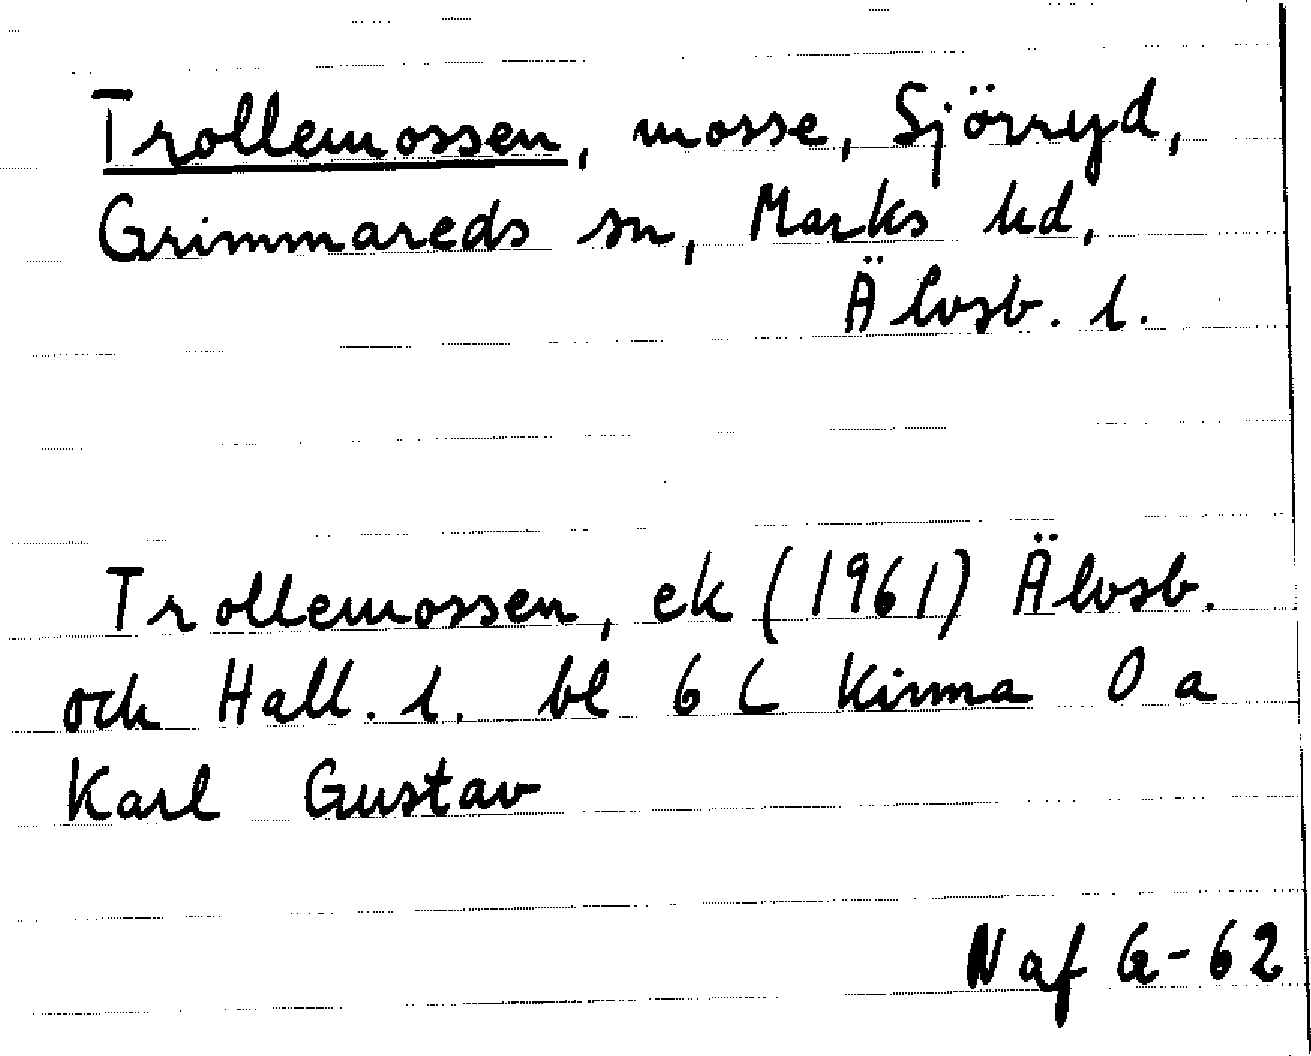 Trollemossen, mosse, Sjörryd,
Grimmareds sn, Marks hd,
Älvsb. l.
Trollemossen, ek (1961) Älvsb.
och Hall. l. bl 6 C Kinna 0 a
Karl Gustav
N af G-62